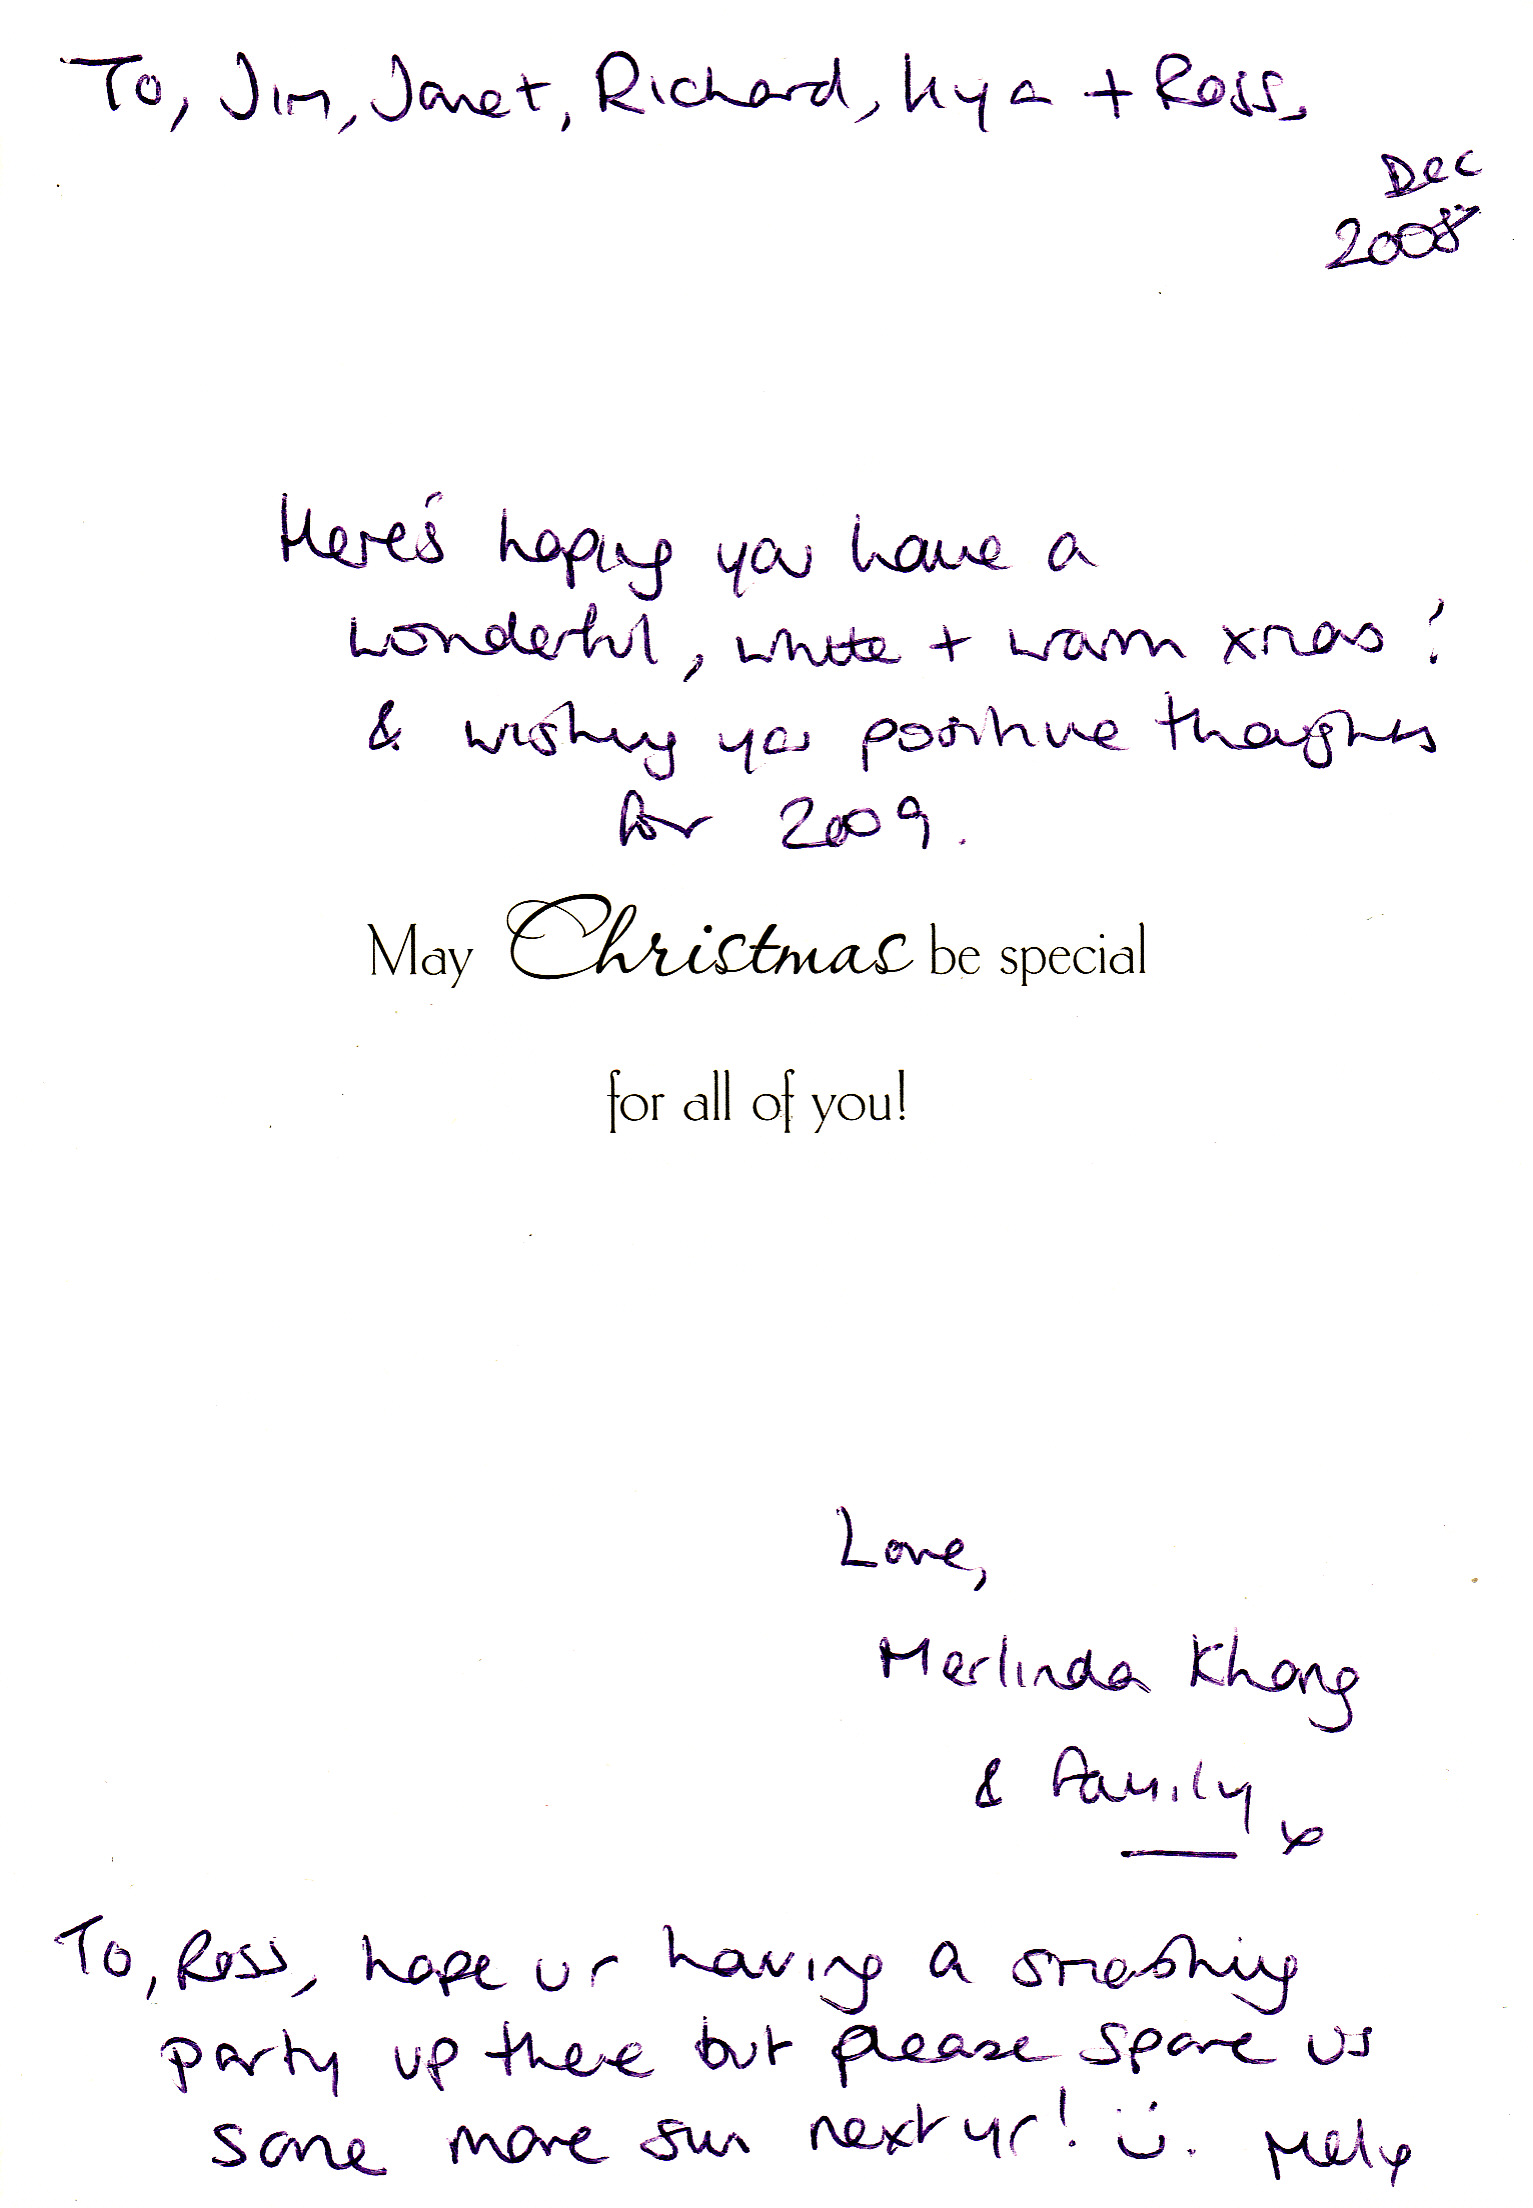 To, Jim, Janet, Richard, Kya + Ross,
Dec
2008
Here's hoping you have a
wonderful, white + warm xmas!
& wishing you positive thoughts
for 2009.
May Christmas be special
for all of you!
Love,
Merlinda Khong
& family x
To, Ross, hope ur having a smashing
party up there but please spare us
some more sun next yr! :). Mel x